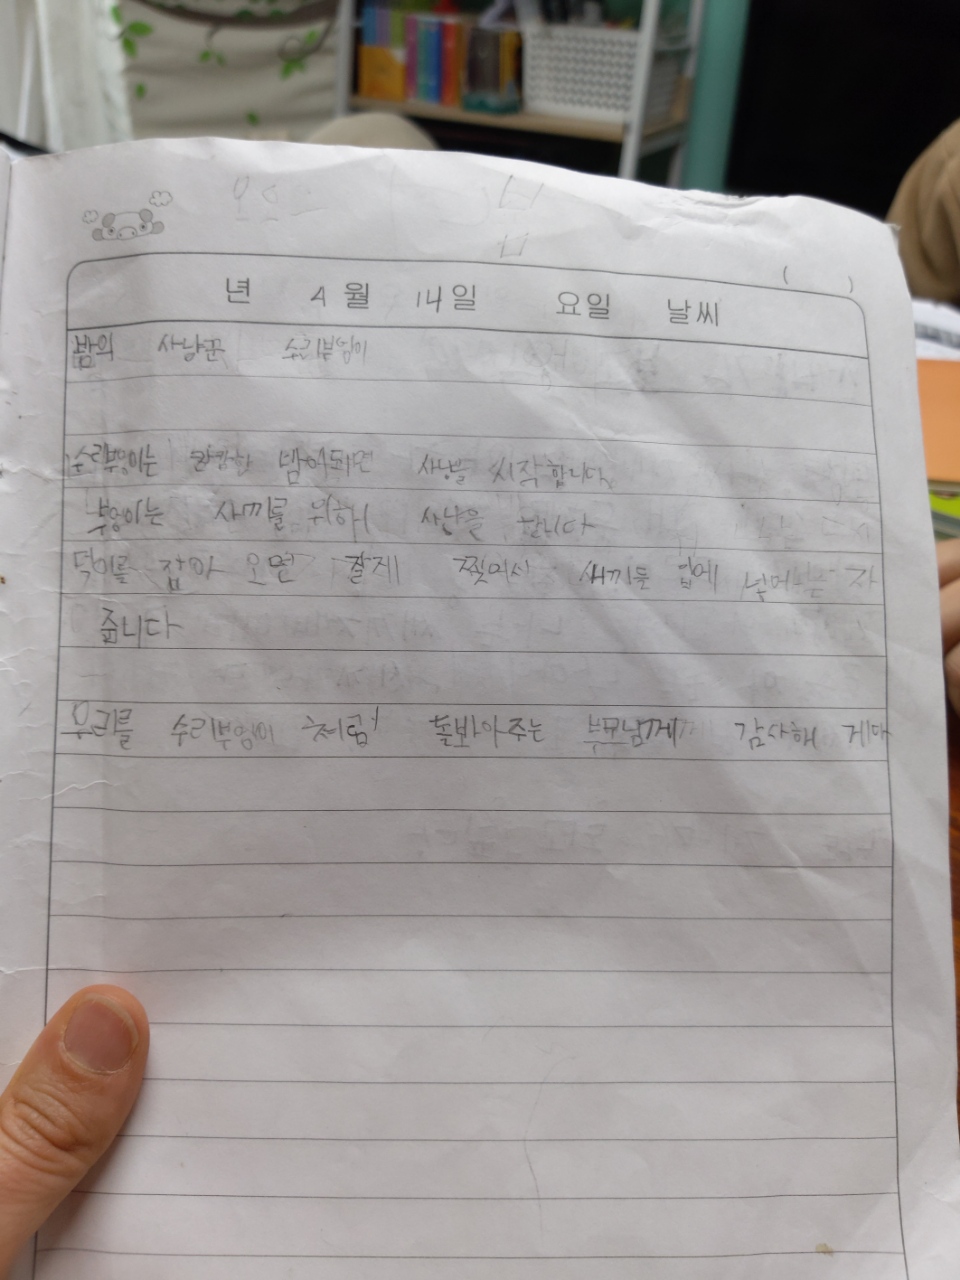 년 4월 14일 요일 날씨 ( )
밤의 사냥꾼 수리부엉이
수리부엉이는 캄캄한 밤이되면 사냥을 시작합니다.
부엉이는 새끼를 위해 사냥을 합니다
먹이를 잡아 오면 잘게 찢어서 새끼들 입에
줍니다
우리를 수리부엉이 처럼 돌봐아주는 부모님께 감사해